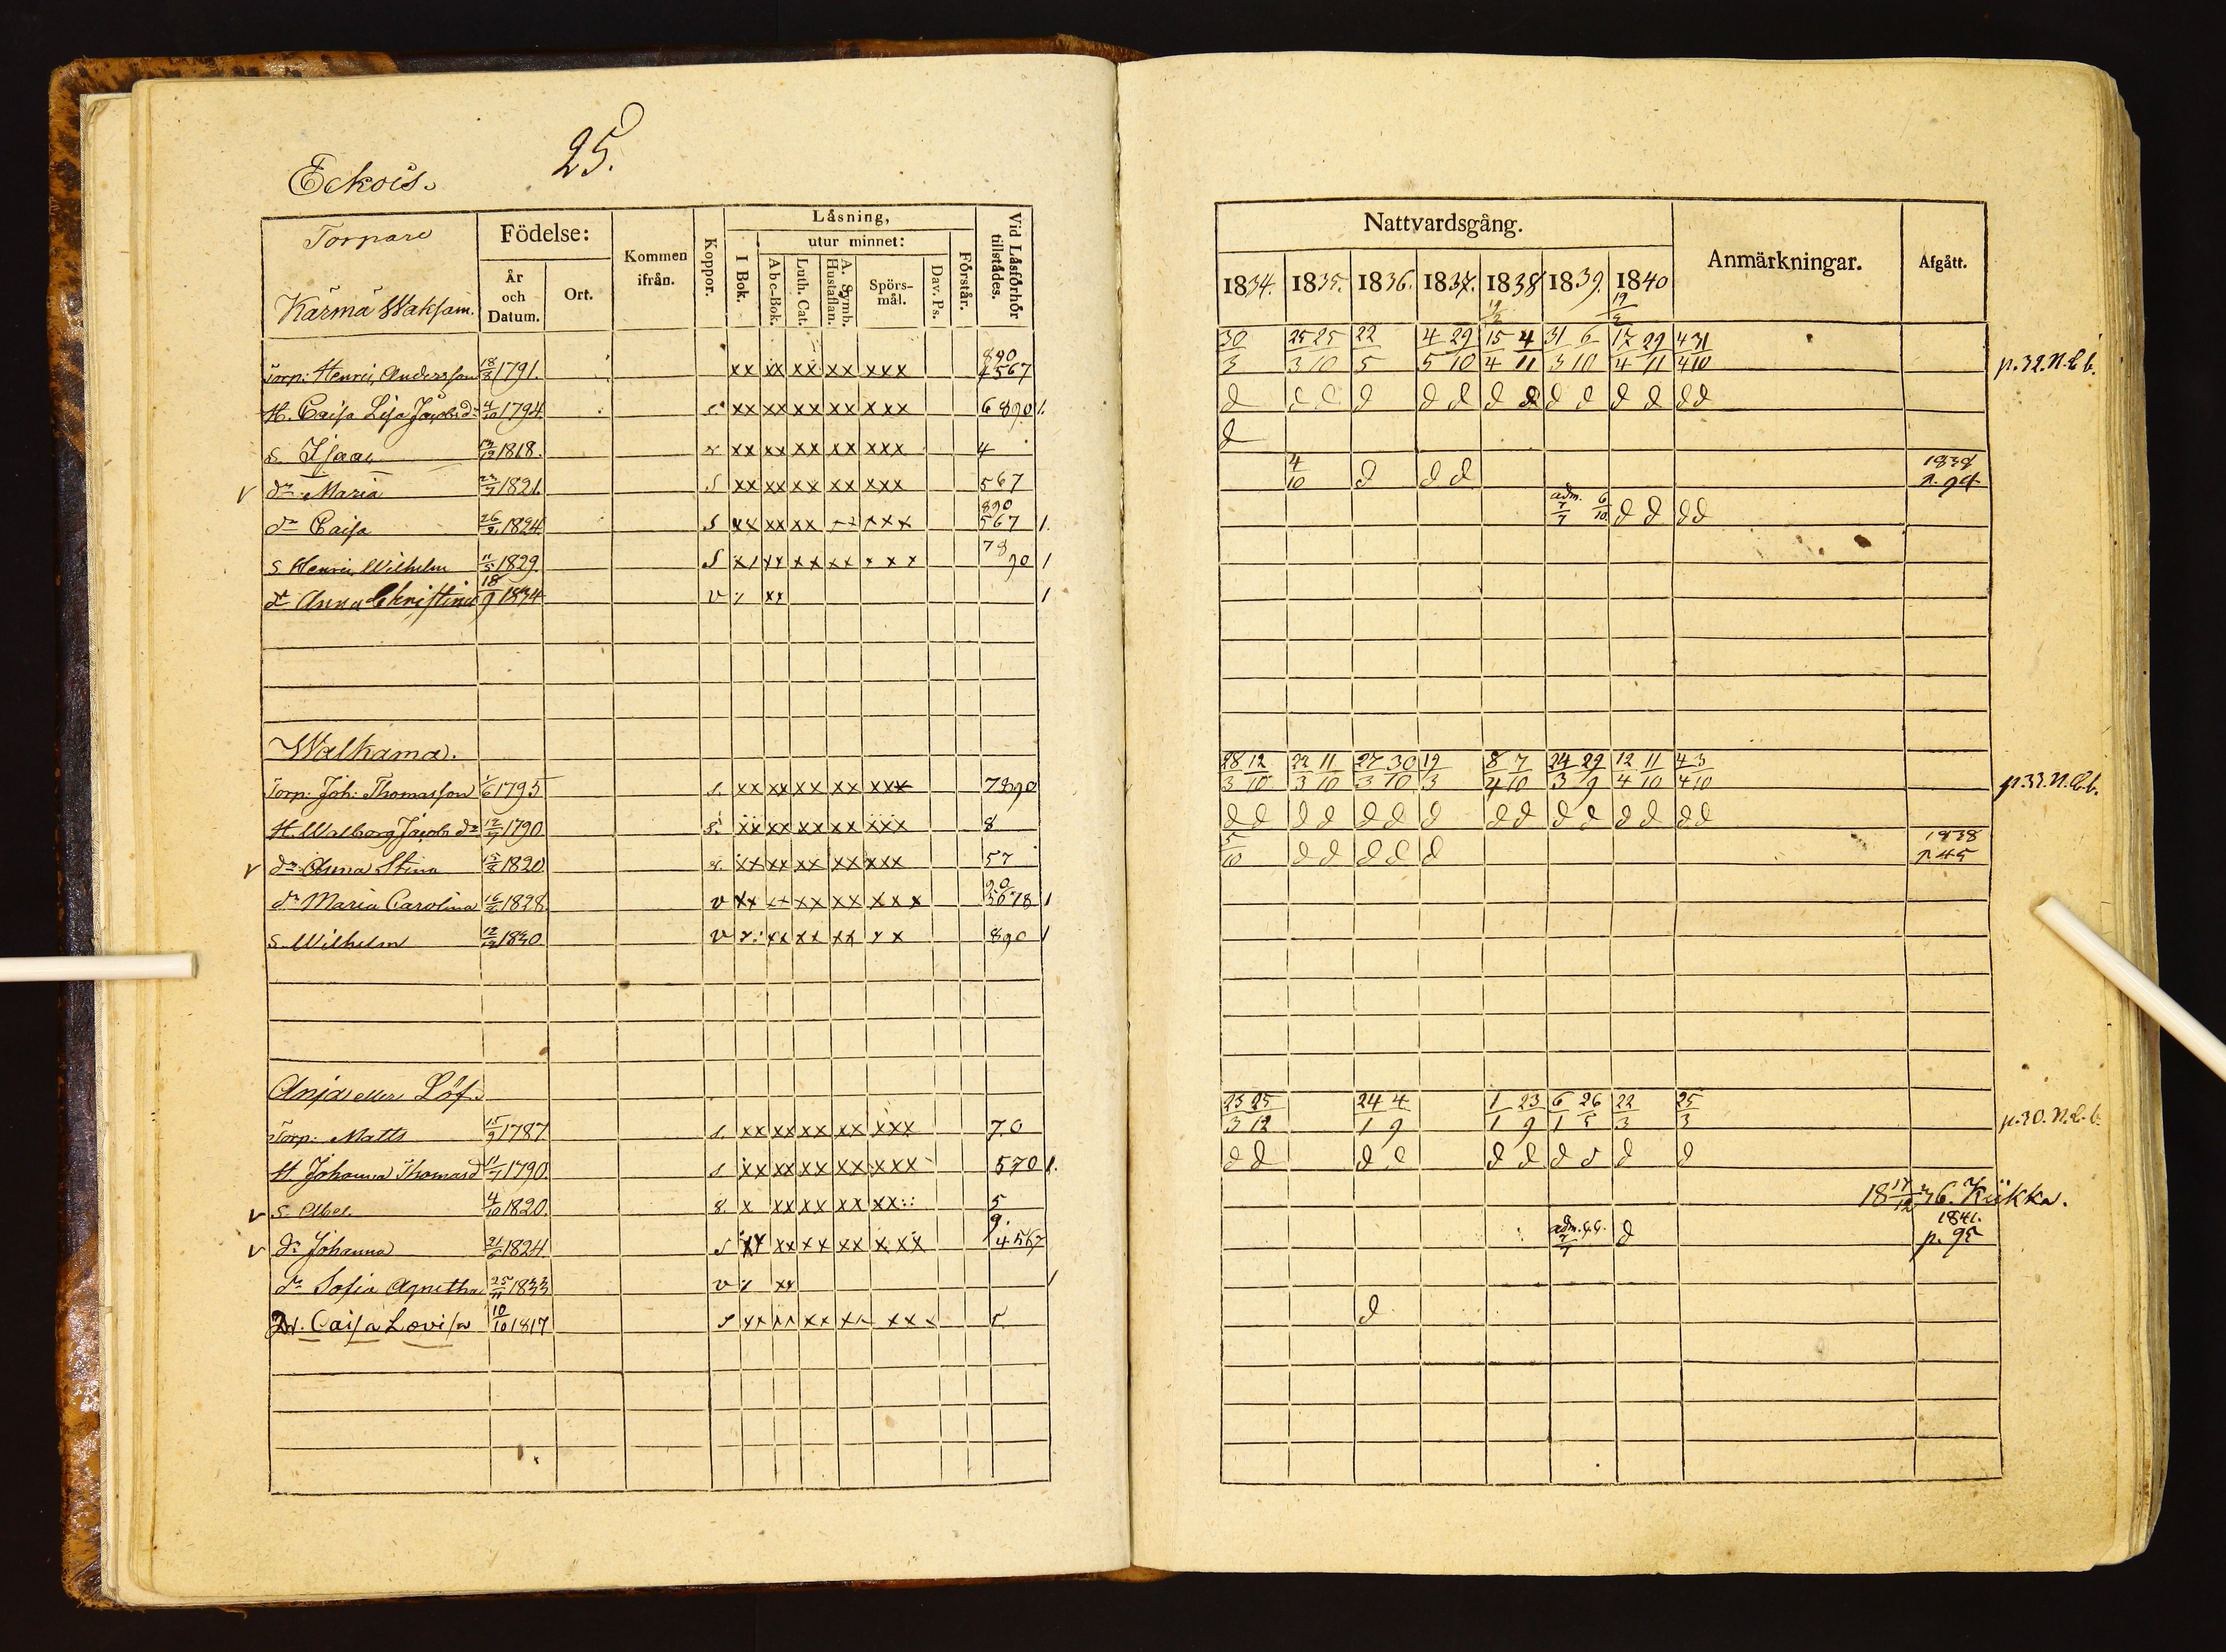 25.
Eckois.
Torpare
Kärmä Waksam.
Födelse:
År och Datum.
Ort.
Kommen ifrån.
Koppor.
Låsning,
I Bok.
utur minnet:
Abc-Bok.
Luth. Cat.
A. Symb. Hustaflan.
Spörs-mål.
Dav. Ps.
Förstår.
Vid Låsförhör tillstådes.
Torp: Henric Andersson 18/8 1791. xx xx xx xx xxx 890 4567
H. Caisa Lisa Jacobsdr 4/10 1794 s. xx xx xx xx xxx 6890 1.
s. Isaac 1818. v xx xx xx xx xxx 4
v dr Maria 1821. s xx xx xx xx xxx 567
dr Caisa 1824. s xx xx xx xx xxx 890 567 1.
s Henric Wilhelm 11/5 1829 s xx xx xx xx xxx 78 90 1
dr Anna Christina 18/9 1834 v xx 1
Walkama.
Torp: Joh: Thomasson 1/6 1795 s. xx xx xx xx xxx 7890
H. Walborg Jacobsdr 1790 s. xx xx xx xx xxx 8
v dr Anna Stina 1820 s. xx xx xx xx xxx 57
dr Maria Carolina 1828. v xx xx xx xx xxx 90 5678 1
s. Wilhelm 1830 v xx xx xx xx 890 1
Anja eller Löf.
Torp: Matts 15/9 1787 s. xx xx xx xx xxx 7.0
H. Johanna Thomasd 1790. s xx xx xx xx xxx 570 1.
v s. Abel 4/10 1820. s. x xx xx xx xx:: 5
v dr Johanna 21/6 1824 s xx xx xx xx xxx 9. 4567
dr Sofia Agnetha 25/11 1833 v xx 1
Caisa Lovisa 10/10 1817 s xx xx xx xx xxx 5.
Nattvardsgång.
Anmärkningar.
Afgått.
1834. 1835. 1836. 1837. 1838 1839. 1840
30/3 25/3 25/10 22/5 4/5 29/10 15/4 4/11 31/3 6/10 17/4 29/11 4/4 31/10 p. 32. N. C. b.
d d d d d d d d d d d d d d
d
4/10 d d d 1839
adm. 7/7 6/10 d d d d
28/3 12/10 22/3 11/10 27/3 30/10 19/3 8/4 7/10 24/3 29/9 12/4 11/10 4/4 3/10 p. 33. N. C. b.
d d d d d d d d d d d d d d d d
5/10 d d d d d 1838 p. 45
23/3 25/12 24/1 4/9 1/1 23/9 6/1 26/5 22/3 25/3 p. 30. N. C. b.
d d d d d d d d d d
18 17/12 36. Kiikka.
adm. 7/7 d 1841. p. 95
d